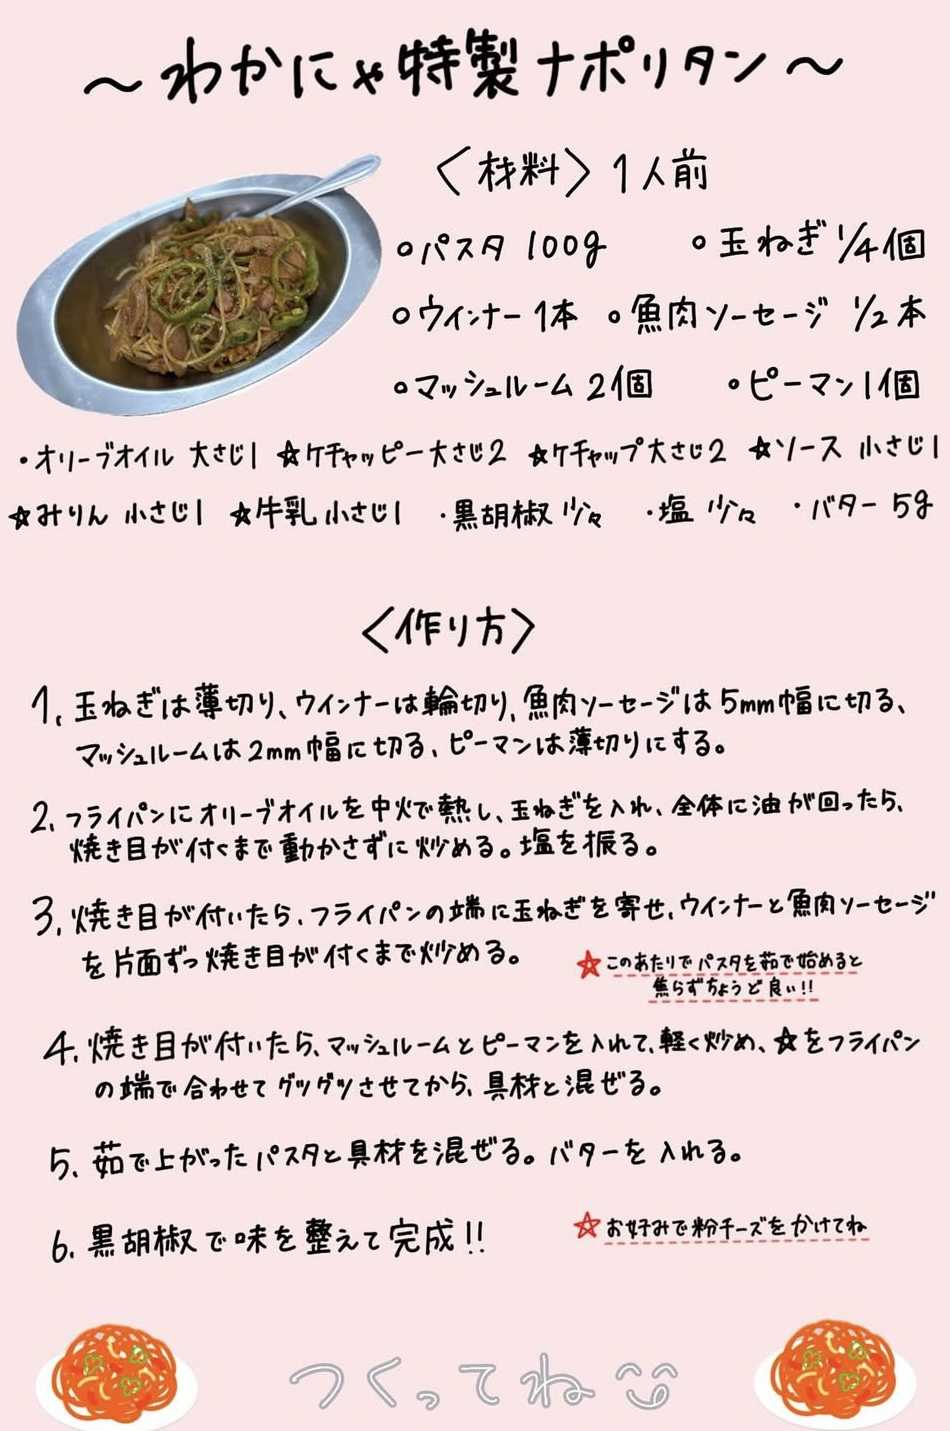 ～わかにゃ特製ナポリタン～
〈材料〉1人前
○パスタ 100g ○玉ねぎ 1/4個
○ウインナー 1本 ○魚肉ソーセージ 1/2本
○マッシュルーム 2個 ○ピーマン1個
・オリーブオイル 大さじ1 ☆ケチャッピー大さじ2 ☆ケチャップ大さじ2 ☆ソース 小さじ1
☆みりん 小さじ1 ☆牛乳小さじ1 ・黒胡椒 少々 ・塩 少々 ・バター 5g
〈作り方〉
1, 玉ねぎは薄切り、ウインナーは輪切り, 魚肉ソーセージは5mm幅に切る、
マッシュルームは2mm幅に切る、ピーマンは薄切りにする。
2, フライパンにオリーブオイルを中火で熱し、玉ねぎを入れ、全体に油が回ったら、
焼き目が付くまで動かさずに炒める。塩を振る。
3, 焼き目が付いたら、フライパンの端に玉ねぎを寄せ、ウインナーと魚肉ソーセージ
を片面ずつ焼き目が付くまで炒める。
☆このあたりでパスタを茹で始めると
焦らずちょうど良い!!
4, 焼き目が付いたら、マッシュルームとピーマンを入れて、軽く炒め、☆をフライパン
の端で合わせてグツグツさせてから、具材と混ぜる。
5, 茹で上がったパスタと具材を混ぜる。バターを入れる。
6, 黒胡椒で味を整えて完成!!
☆お好みで粉チーズをかけてね
つくってね